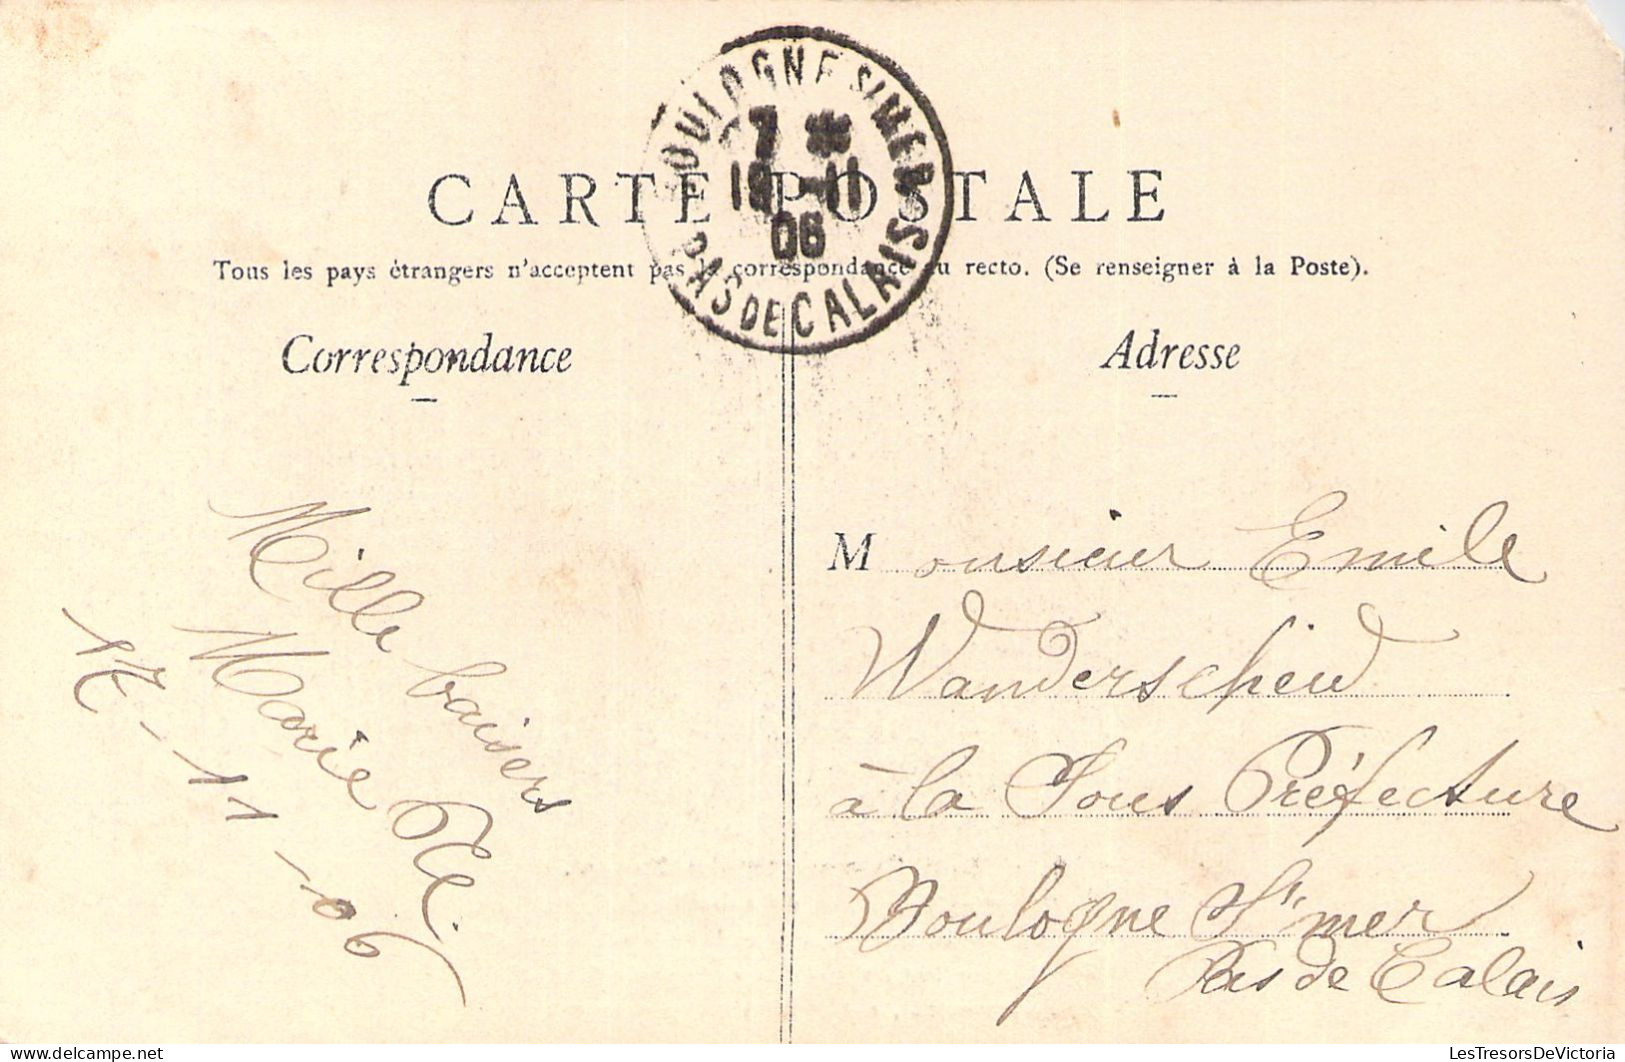 BOULOGNE S/MER
7 *
18 - 11
06
PAS DE CALAIS
CARTE POSTALE
Tous les pays étrangers n'acceptent pas la correspondance au recto. (Se renseigner à la Poste).
Correspondance
Mille baisers
Marie
17-11-06
Adresse
Monsieur Emile
Wanderscheid
à la Sous Préfecture
Boulogne s/ mer
Pas de Calais
LesTresorsDeVictoria